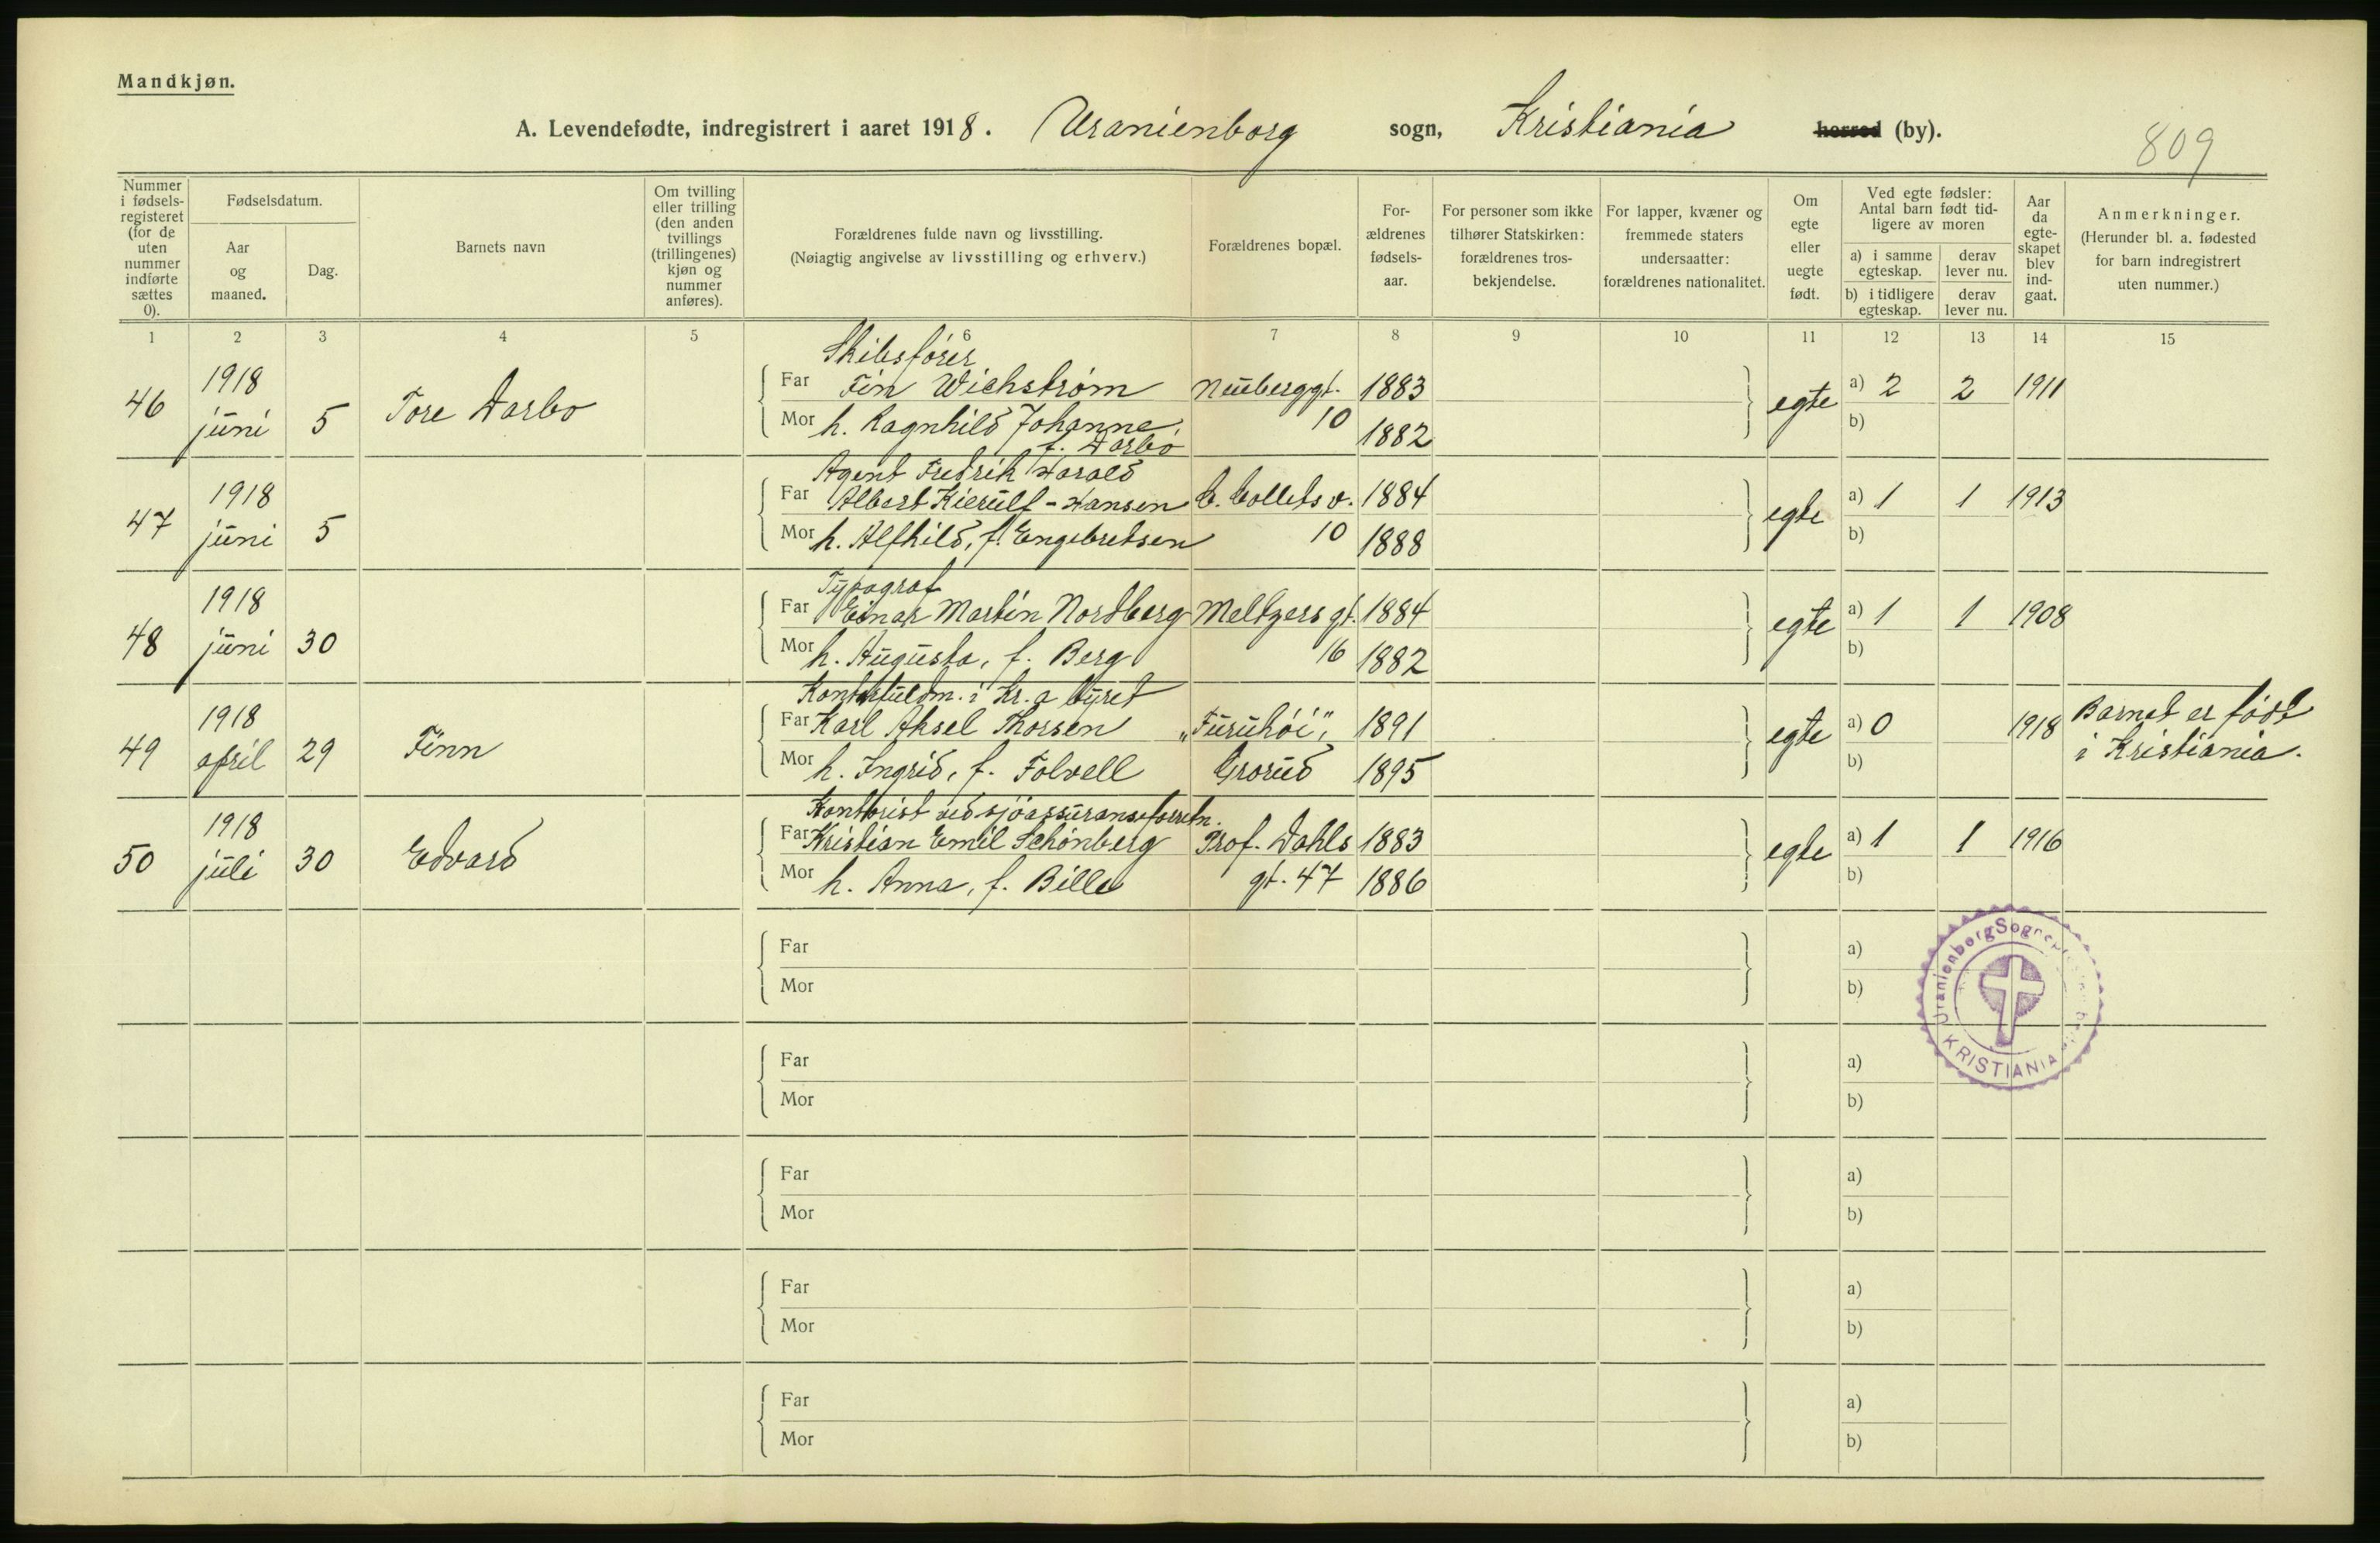 Mandkjøn.
A. Levendefødte, indregistrert i aaret 1918. Uranienborg sogn, Kristiania herred (by).
809
Nummer i fødsels-registeret (for de uten nummer indførte sættes 0).
Fødselsdatum.
Aar og maaned.
Dag.
Barnets navn
Om tvilling eller trilling (den anden tvillings (trillingenes) kjøn og nummer anføres).
Forældrenes fulde navn og livsstilling.
(Nøiagtig angivelse av livsstilling og erhverv.)
Forældrenes bopæl.
For-ældrenes fødsels-aar.
For personer som ikke tilhører Statskirken: forældrenes tros-bekjendelse.
For lapper, kvæner og fremmede staters undersaatter: forældrenes nationalitet.
Om egte eller uegte født.
Ved egte fødsler: Antal barn født tid-ligere av moren
a) i samme egteskap.
derav lever nu.
b) i tidligere egteskap.
derav lever nu.
Aar da egte-skapet blev ind-gaat.
Anmerkninger.
(Herunder bl. a. fødested for barn indregistrert uten nummer.)
1 2 3 4 5 6 7 8 9 10 11 12 13 14 15
Skibsfører
46 1918 juni 5 Tore Darbo
Far Fin Wichstrøm Neuberggt. 1883 egte a) 2 2 1911
Mor h. Ragnhild Johanne, 10 1882 b)
f. Darbo
Agent Fredrik Harald
47 1918 juni 5
Far Albert Kierulf-Hansen C. Collets v. 1884 egte a) 1 1 1913
Mor h. Alfhild, f. Engebretsen 10 1888 b)
Typograf
48 1918 juni 30
Far Einar Martin Nordberg Meltzers gt. 1884 egte a) 1 1 1908
Mor h. Augusta, f. Berg 16 1882 b)
Kontorfuldm. i Kr.a byret
49 1918 april 29 Finn
Far Karl Aksel Thorsen „Furuhøi", 1891 egte a) 0 1918 Barnet er født
Mor h. Ingrid, f. Folvell Grorud 1895 b) i Kristiania.
Kontorist ved sjøassuranseforretn.
50 1918 juli 30 Edvard
Far Kristian Emil Schönberg Prof. Dahls 1883 egte a) 1 1 1916
Mor h. Anna, f. Bille gt. 47 1886 b)
Far a)
Mor b)
Uranienborg
KRISTIANIA
Far a)
Mor b)
Far a)
Mor b)
Far a)
Mor b)
Far a)
Mor b)